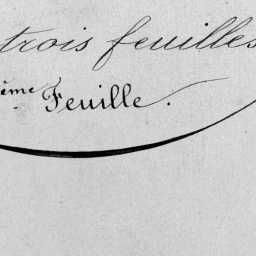 trois feuilles
ème Feuille.